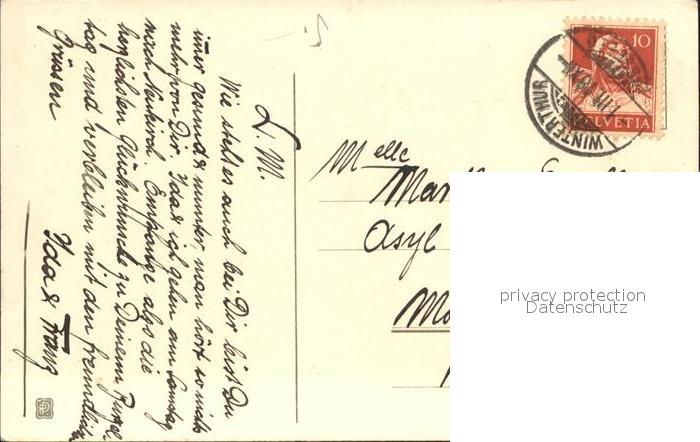 L. M.
Wie steht es auch bei Dir bist Du
immer gesund & munter, man hört so nichts
mehr von Dir. Ida & ich gehen am Samstag
nach Neukirch. Empfange also die
herzlichsten Glückwünsche zu Deinem Purzel-
tag und verbleiben mit den freundlichsten
Grüssen
Ida & Franz
Melle
Asyl
10
HELVETIA
WINTERTHUR
privacy protection
Datenschutz